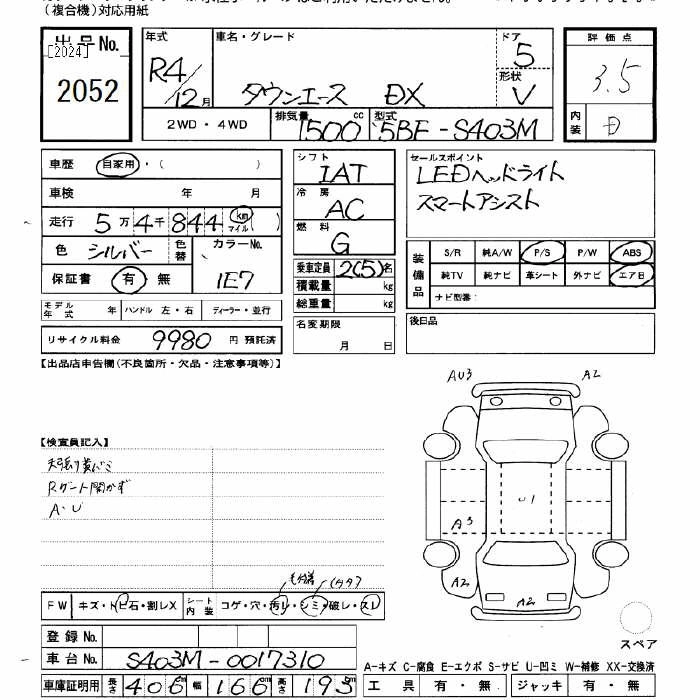 (複合機)対応用紙
出品No.
[2024]
2052
年式
R4/12月
車名・グレード
タウンエース DX
ドア
5
形状
V
評価点
3.5
内装
D
2WD・4WD
排気量 1500cc
型式 5BF-S403M
車歴 自家用・( )
車検 年 月
走行 5万4千844 km マイル( )
色 シルバー 色替
カラーNo.
1E7
保証書 有 無
モデル年式 年 ハンドル 左・右 ディーラー・並行
リサイクル料金 9980 円 預託済
シフト
IAT
冷房
AC
燃料
G
乗車定員 2(5)名
積載量 kg
総重量 kg
名変期限
月 日
セールスポイント
LEDヘッドライト
スマートアシスト
装備品
S/R 純A/W P/S P/W ABS
純TV 純ナビ 革シート 外ナビ エアB
ナビ型番:
後日品
【出品店申告欄(不良箇所・欠品・注意事項等)】
【検査員記入】
天張り黄バミ
Rゲート開かず
A・U
AU3
A2
U1
A3
A2
A2
FW キズ・トビ石・割レX
シート内装 コゲ・穴・汚レ・シミ・破レ・スレ
登録No.
車台No. S403M-0017310
車庫証明用 長さ 406cm 幅 166cm 高さ 193cm
スペア
A-キズ C-腐食 E-エクボ S-サビ U-凹ミ W-補修 XX-交換済
工具 有・無 ジャッキ 有・無